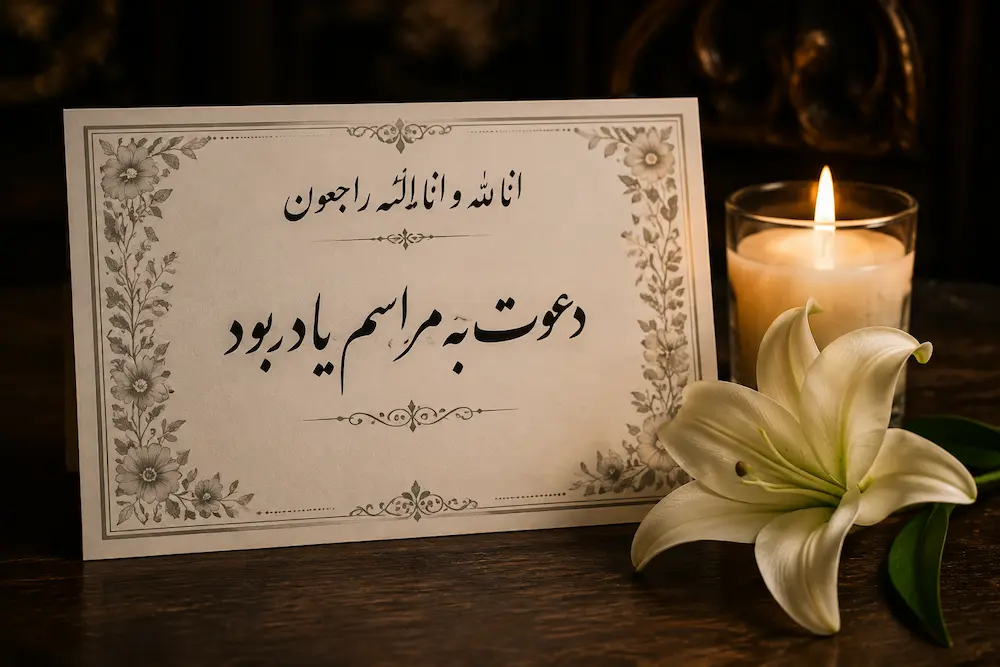 انا لله و انا الیه راجعون
دعوت به مراسم یادربود